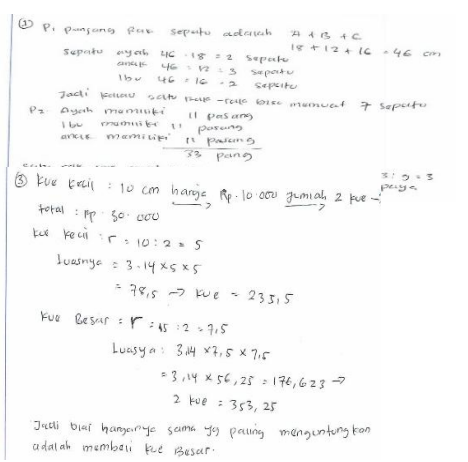 ① P1 panjang rak sepatu adalah A + B + C
18 + 12 + 16 = 46 cm
sepatu ayah 46 : 18 = 2 sepatu
anak 46 : 12 = 3 sepatu
Ibu 46 : 16 = 2 sepatu
Jadi kalau satu rak-rak bisa memuat 7 sepatu
P2 Ayah memiliki 11 pasang
Ibu memiliki 11 pasang
anak memiliki 11 pasang
33 pang
③ Kue kecil : 10 cm harga Rp. 10.000 jumlah 2 kue →
3 : 9 = 3
total : Rp 30.000
kue kecil : r = 10 : 2 = 5
Luasnya = 3.14 x 5 x 5
= 78,5 → kue = 235,5
Kue Besar : r = 15 : 2 = 7,5
Luasya : 3,14 x 7,5 x 7,5
= 3,14 x 56,25 = 176,623 →
2 kue = 353,25
Jadi biar harganya sama yg paling menguntungkan
adalah membeli kue Besar.